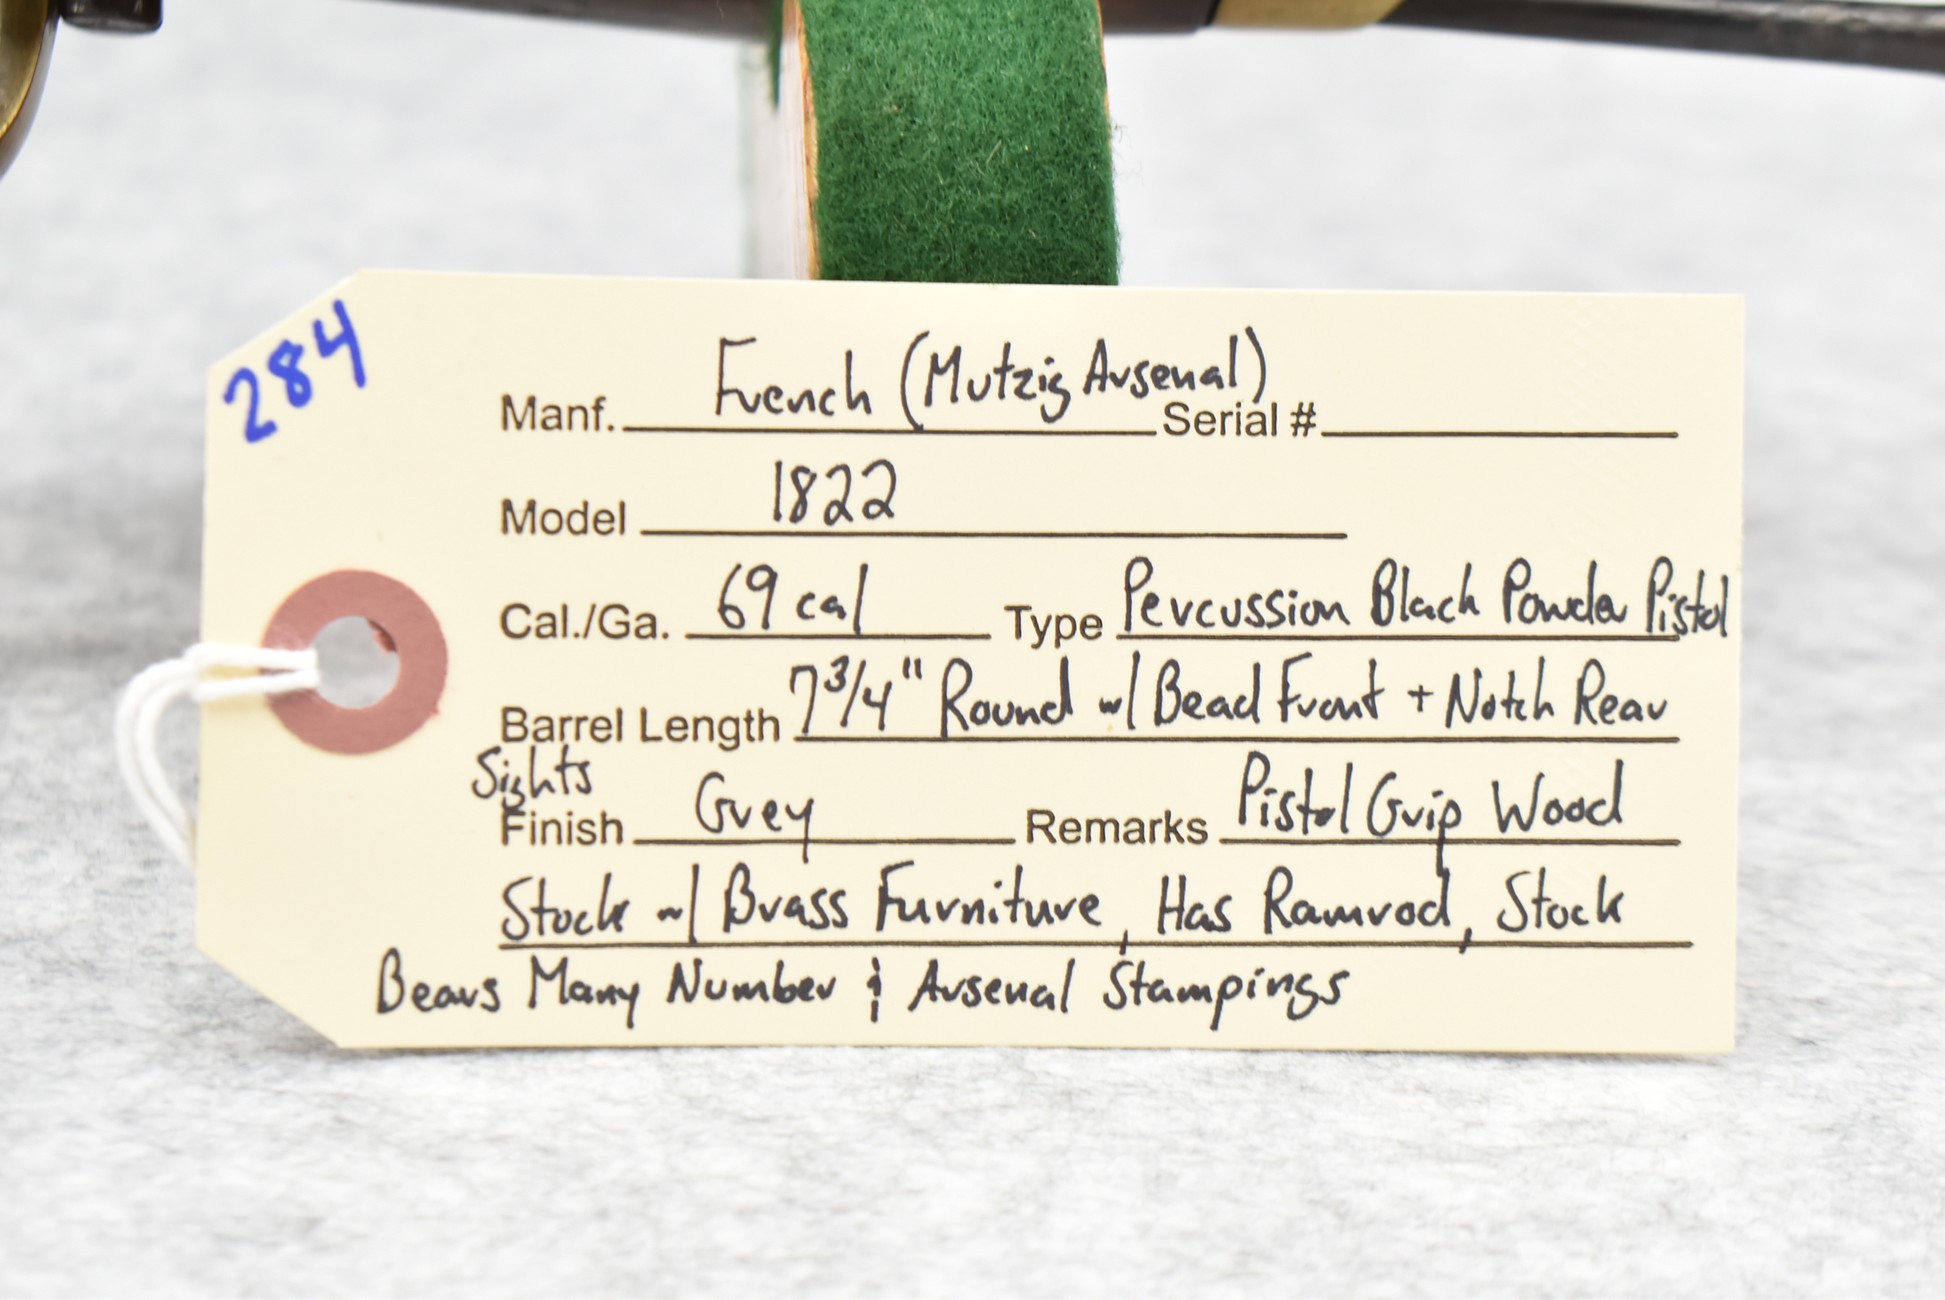 284
Manf. French (Mutzig Arsenal) Serial #
Model 1822
Cal./Ga. 69 cal Type Percussion Black Powder Pistol
Barrel Length 7 3/4" Round w/ Bead Front + Notch Rear
Sights
Finish Grey Remarks Pistol Grip Wood
Stock w/ Brass Furniture, Has Ramrod, Stock
Bears Many Number & Arsenal Stampings